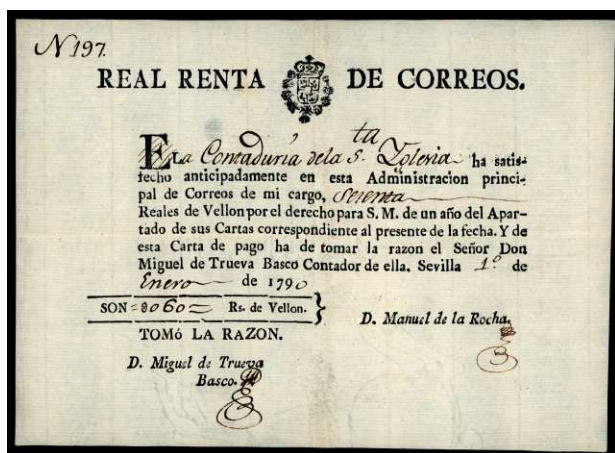 N 197.
REAL RENTA DE CORREOS.
EL La Contaduría de la S.ta Yglesia ha satis-
fecho anticipadamente en esta Administracion princi-
pal de Correos de mi cargo, sesenta
Reales de Vellon por el derecho para S. M. de un año del Apar-
tado de sus Cartas correspondiente al presente de la fecha. Y de
esta Carta de pago ha de tomar la razon el Señor Don
Miguel de Trueva Basco Contador de ella. Sevilla 1.º de
Enero de 1790
SON 060 Rs. de Vellon.
D. Manuel de la Rocha.
TOMÓ LA RAZON.
D. Miguel de Trueva
Basco.